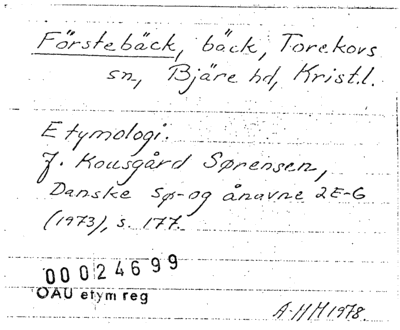 Förstebäck, bäck, Torekovs
sn, Bjäre hd, Krist.l.
Etymologi.
J. Kousgård Sørensen,
Danske sø- og ånavne 2E-G
(1973), s. 177.
00024699
OAU etym reg
A-HH 1978.